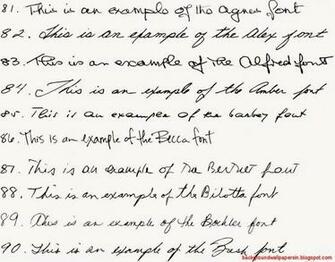 81. This is an example of the Agnes font
82. This is an example of the Alex font
83. This is an example of the Alfred font
84. This is an example of the Amber font
85. This is an example of the font
86. This is an example of the Becca font
87. This is an example of the font
88. This is an example of the Bilotta font
89. This is an example of the font
90. This is an example of the Bush font
backgroundwallpapersin.blogspot.com